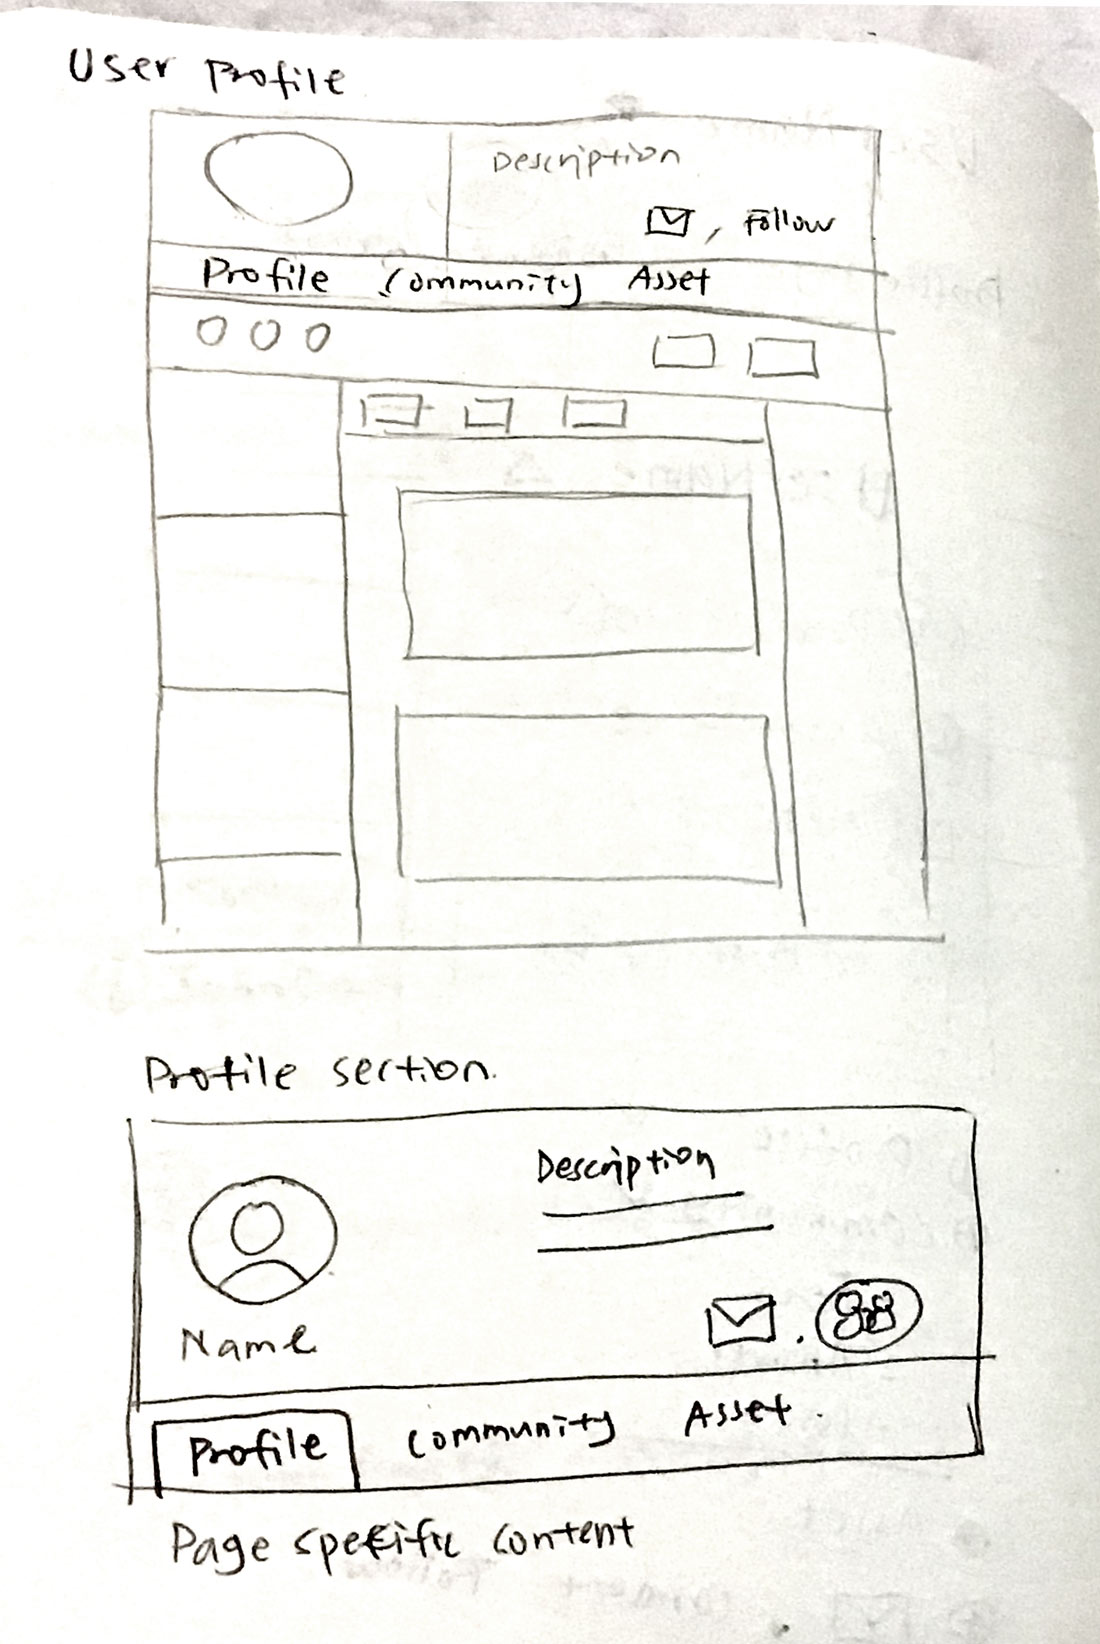 User Profile
Description
, Follow
Profile Community Asset
Profile section.
Description
Name
Profile Community Asset.
Page specific content